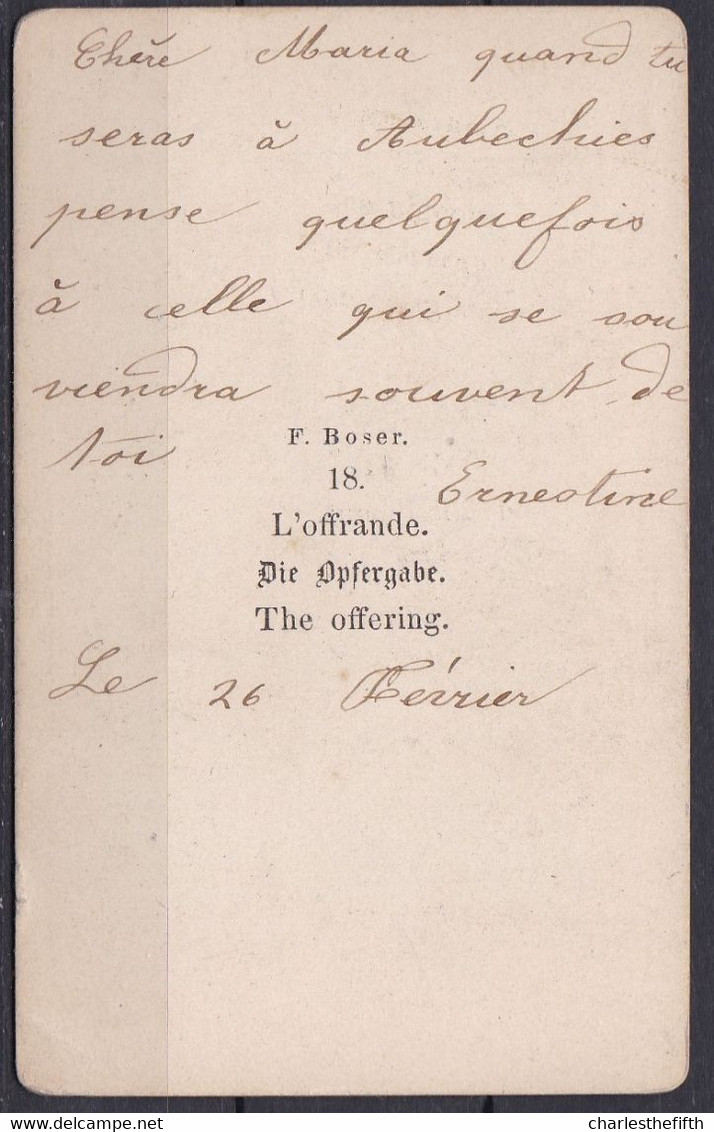 Chère Maria quand tu
seras à Aubechies
pense quelquefois
à celle qui se sou
viendra souvent de
toi
F. Boser.
18.
Ernestine
L'offrande.
Die Opfergabe.
The offering.
Le 26 Février
delcampe.net
charlesthefifth